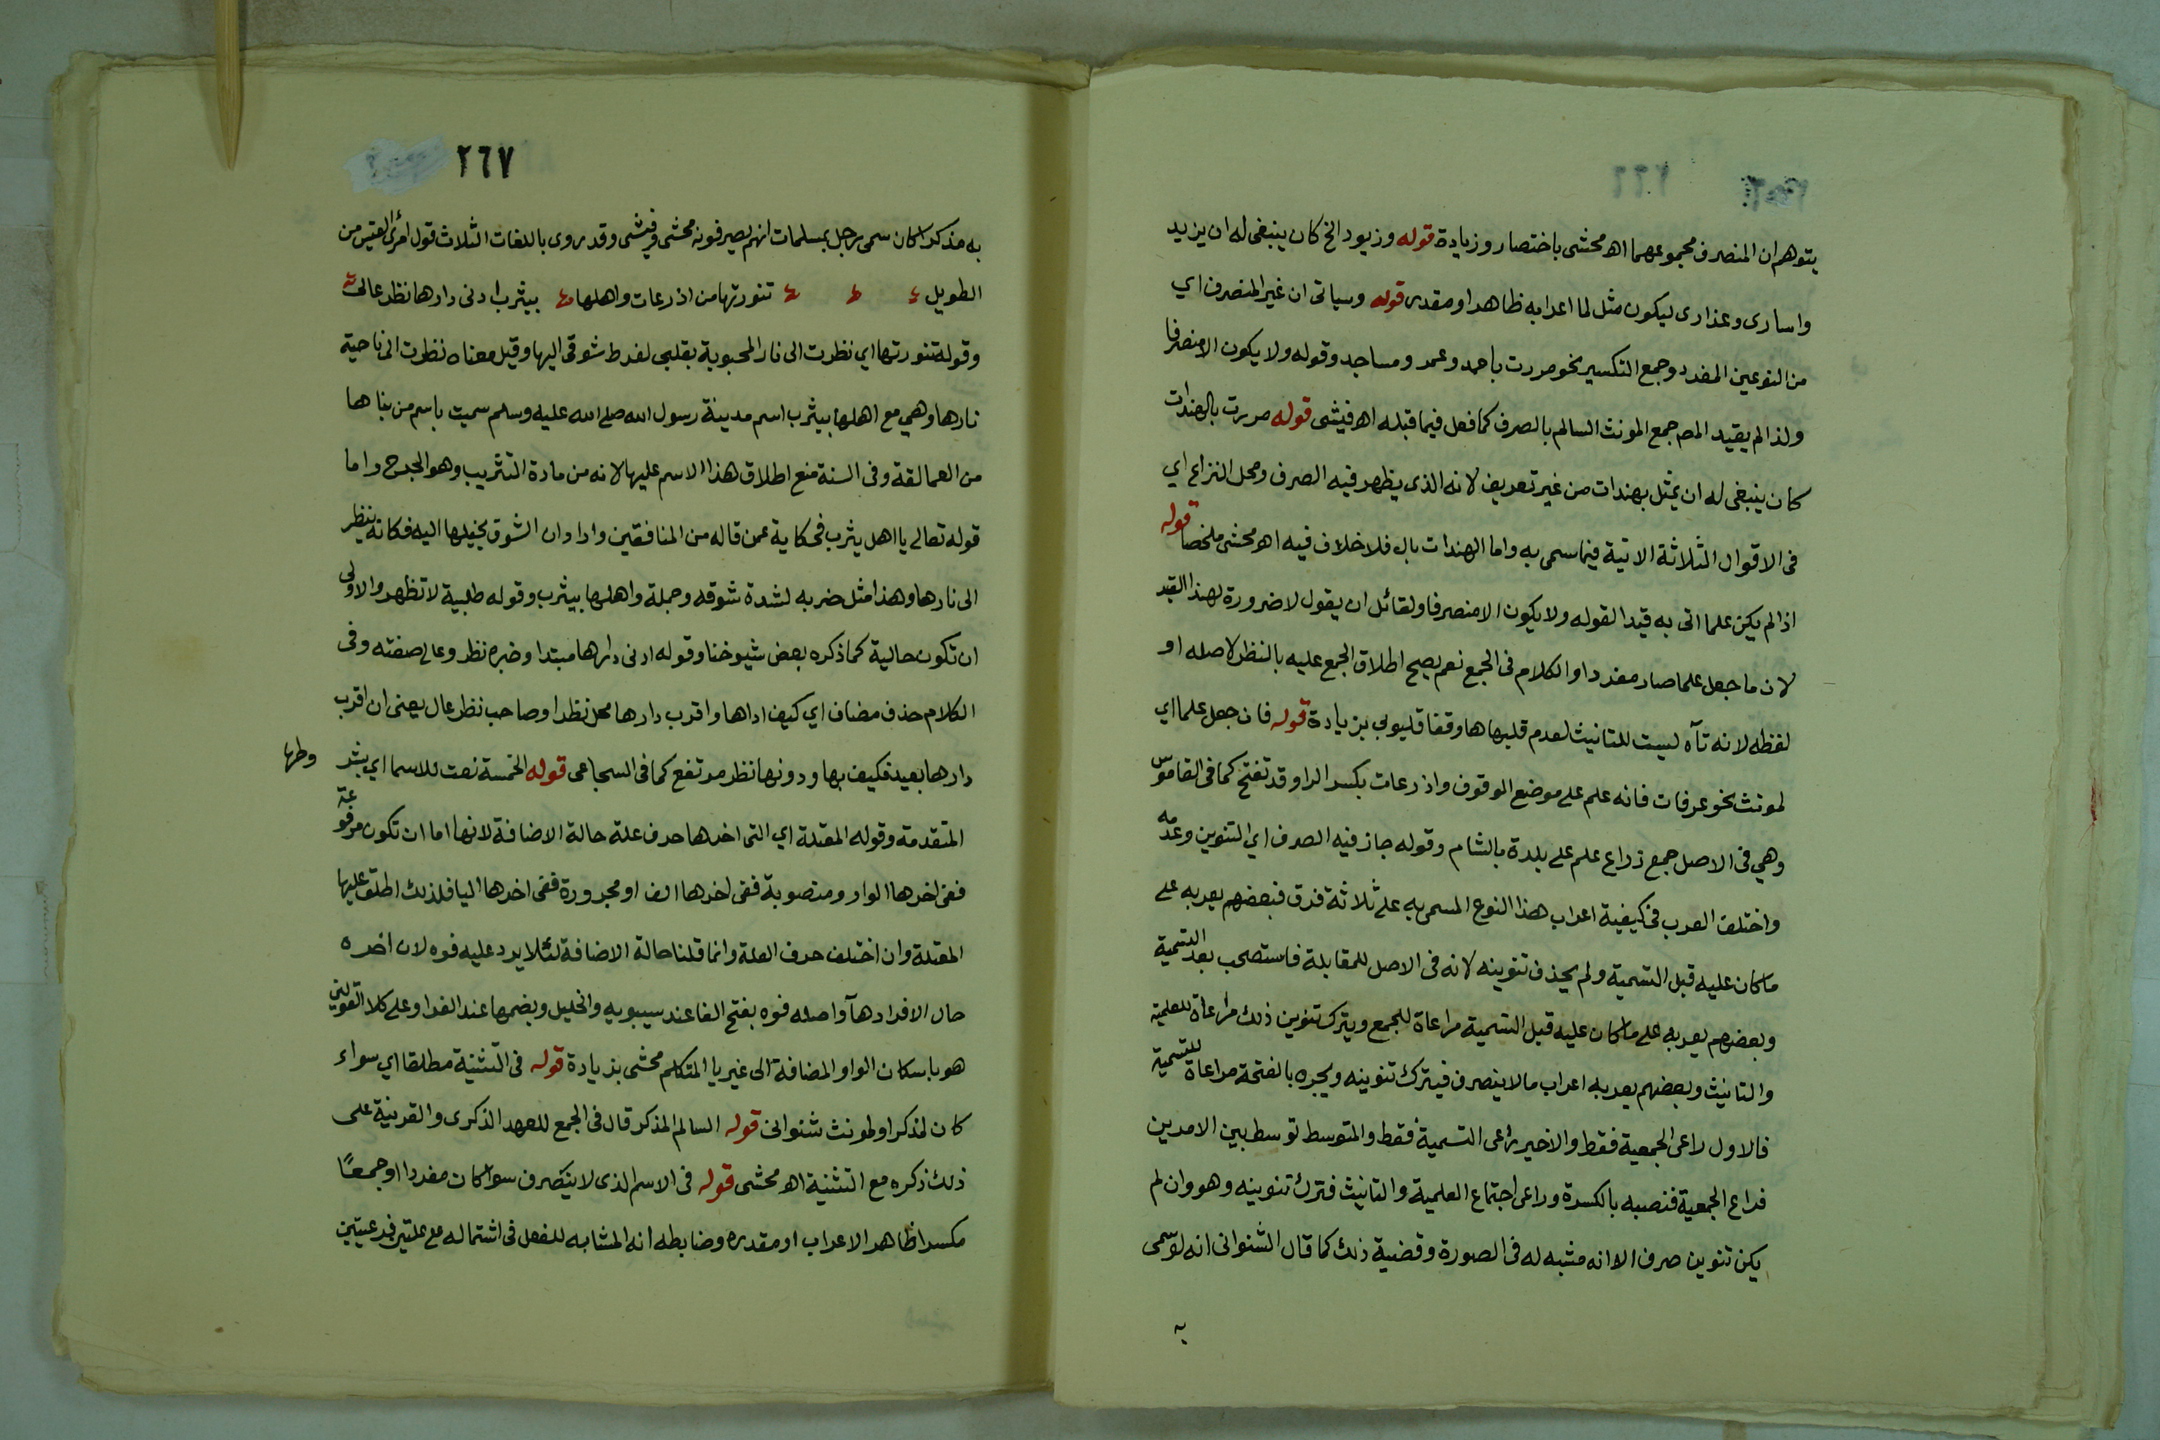 ٢٦٦
يتوهم ان المنصرف مجموعهما اه محشى باختصار وزيادة قوله وزيود الخ كان ينبغى له ان يزيد
واسارى وعذارى ليكون مثل لما اعرابه ظاهرا ومقدر قوله وسياتى ان غير المنصرف اي
من النوعين المفرد وجمع التكسير نحو مررت باحمد وعمر ومساجد وقوله ولا يكون الا منصرفا
ولذا لم يقيد المص جمع المونث السالم بالصرف كما فعل فيما قبله اه فيشى قوله مررت بالهندات
كان ينبغى له ان يمثل بهندات من غير تعريف لانه الذى يظهر فيه الصرف ومحل النزاع اي
فى الاقوال الثلاثة الاتية فيما سمى به واما الهندات بال فلا خلاف فيه اه محشى ملخصا قوله
اذا لم يكن علما اتى به قيد القوله ولا يكون الا منصرفا ولقائل ان يقول لا ضرورة لهذا القيد
لان ما جعل علما صار مفردا والكلام فى الجمع نعم يصح اطلاق الجمع عليه بالنظر لاصله او
لفظه لانه تآه ليست للتانيث لعدم قلبها ها وقفا قليوبى بزيادة قوله فان جعل علما اي
لمونث نحو عرفات فانه علم على موضع الوقوف واذرعات بكسر الرا وقد تفتح كما فى القاموس
وهي فى الاصل جمع زراع علم على بلدة بالشام وقوله جاز فيه الصرف اي التنوين وعدمه
واختلف العرب فى كيفية اعراب هذا النوع المسمى به على ثلاثة فرق فبعضهم يعربه على
ما كان عليه قبل التسمية ولم يحذف تنوينه لانه فى الاصل للمقابلة فاستصحب بعد التسمية
وبعضهم يعربه على ما كان عليه قبل التسمية مراعاة للجمع ويترك تنوين ذلك مراعاة للعلمية
والتانيث وبعضهم يعربه اعراب ما لا ينصرف فيترك تنوينه ويجره بالفتحة مراعاة للتسمية
فالاول راعى الجمعية فقط والاخير راعى التسمية فقط والمتوسط توسط بين الامرين
فراع الجمعية فنصبه بالكسرة وراعى اجتماع العلمية والتانيث فترك تنوينه وهو وان لم
يكن تنوين صرف الا انه مشبه له فى الصورة وقضية ذلك كما قال الشنوانى انه لو سمى
به
٢٦٧
به مذكرا كان سمى رجل بمسلمات انهم يصرفونه محشى وفيشى وقد روى باللغات الثلاث قول امرئ القيس من
الطويل تنورتها من اذرعات واهلها بيثرب ادنى دارها نظر عالى
وقوله تنورتها اي نظرت الى نار المحبوبة بقلبى لفرط شوقى اليها وقيل معناه نظرت الى ناحية
نارها وهي مع اهلها بيثرب اسم مدينة رسول الله صلى الله عليه وسلم سميت باسم من بناها
من العمالقة وفى السنة منع اطلاق هذا الاسم عليها لانه من مادة التثريب وهو الجرح واما
قوله تعالى يا اهل يثرب فحكاية عمن قاله من المنافقين واراد ان الشوق يخيلها اليه فكانه ينظر
الى نارها وهذا مثل ضربه لشدة شوقه وجملة واهلها بيثرب وقوله طلبية لا تظهر والاولى
ان تكون حالية كما ذكره بعض شيوخنا وقوله ادنى دارها مبتدا وخبره نظر وعالى صفته وفى
الكلام حذف مضاف اي كيف اراها واقرب دارها محل نظر او صاحب نظر عال يعنى ان اقرب
دارها بعيد فكيف بها ودونها نظر مرتفع كما فى السجاعى قوله الخمسة نعت للاسما اي بشرطها
المتقدمة وقوله المعتلة اي التى اخرها حرف علة حالة الاضافة لانها اما ان تكون مرفوعة
ففى اخرها الواو ومنصوبة ففى اخرها الف او مجرورة ففى اخرها اليا فلذلك اطلق عليها
المعتلة وان اختلف حرف العلة وانما قلنا حالة الاضافة لئلا يرد عليه فوه لان اخره
حال الافراد هآ واصله فوه بفتح الفا عند سيبويه والخليل وبضمها عند الفرا وعلى كلا القولين
هو باسكان الواو المضافة الى غير يا المتكلم محشى بزيادة قوله فى التثنية مطلقا اي سواء
كان لمذكر او لمونث شنوانى قوله السالم المذكر قال فى الجمع للعهد الذكرى والقرينة على
ذلك ذكره مع التثنية اه محشى قوله فى الاسم الذى لا ينصرف سوا كان مفردا او جمعًا
مكسرا ظاهر الاعراب او مقدره وضابطه انه المشابه للفعل فى اشتماله على علتين فرعيتين